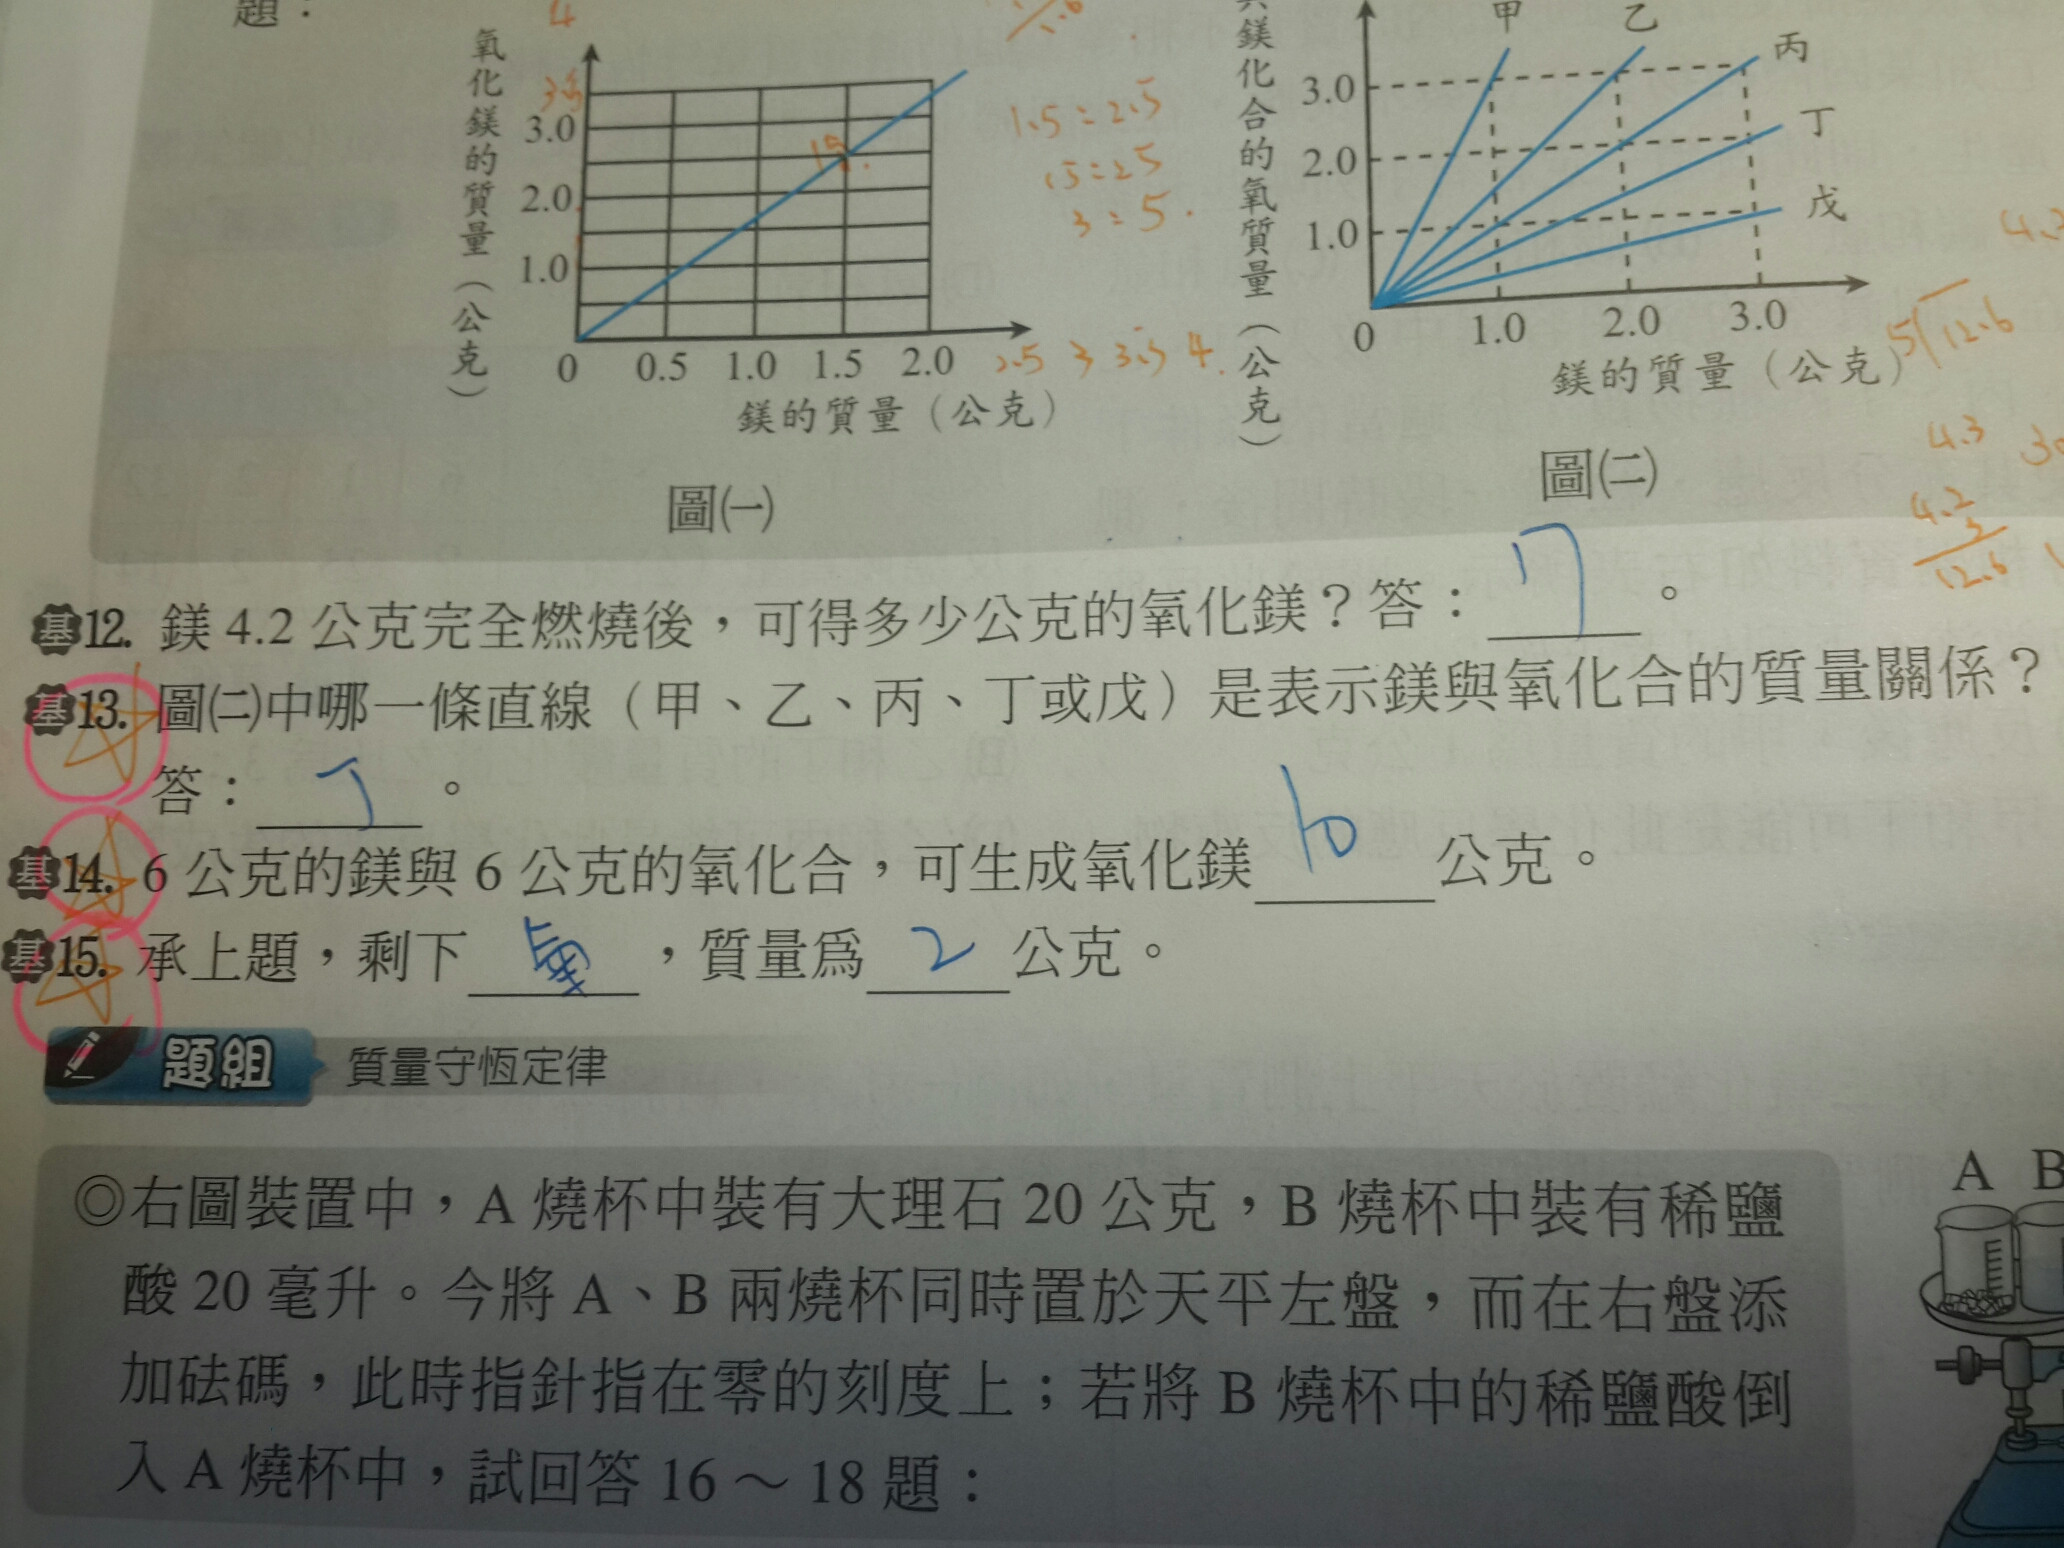 題：
4
氧化鎂的質量（公克）
3.5
3.0
2.0
1.0
0 0.5 1.0 1.5 2.0
鎂的質量（公克）
圖㈠
1.5：2.5
15：25
3：5
2.5 3 3.5 4
與鎂化合的氧質量（公克）
甲 乙 丙
丁
戊
3.0
2.0
1.0
0 1.0 2.0 3.0
鎂的質量（公克）
圖㈡
4.3
5 12.6
4.3 30
4.2
3
12.6
基12. 鎂 4.2 公克完全燃燒後，可得多少公克的氧化鎂？答： 17 。
基13. 圖㈡中哪一條直線（甲、乙、丙、丁或戊）是表示鎂與氧化合的質量關係？
答： 丁 。
基14. 6 公克的鎂與 6 公克的氧化合，可生成氧化鎂 10 公克。
基15. 承上題，剩下 氧 ，質量為 2 公克。
題組 質量守恆定律
◎右圖裝置中，A 燒杯中裝有大理石 20 公克，B 燒杯中裝有稀鹽
酸 20 毫升。今將 A、B 兩燒杯同時置於天平左盤，而在右盤添
加砝碼，此時指針指在零的刻度上；若將 B 燒杯中的稀鹽酸倒
入 A 燒杯中，試回答 16～18 題：
A B